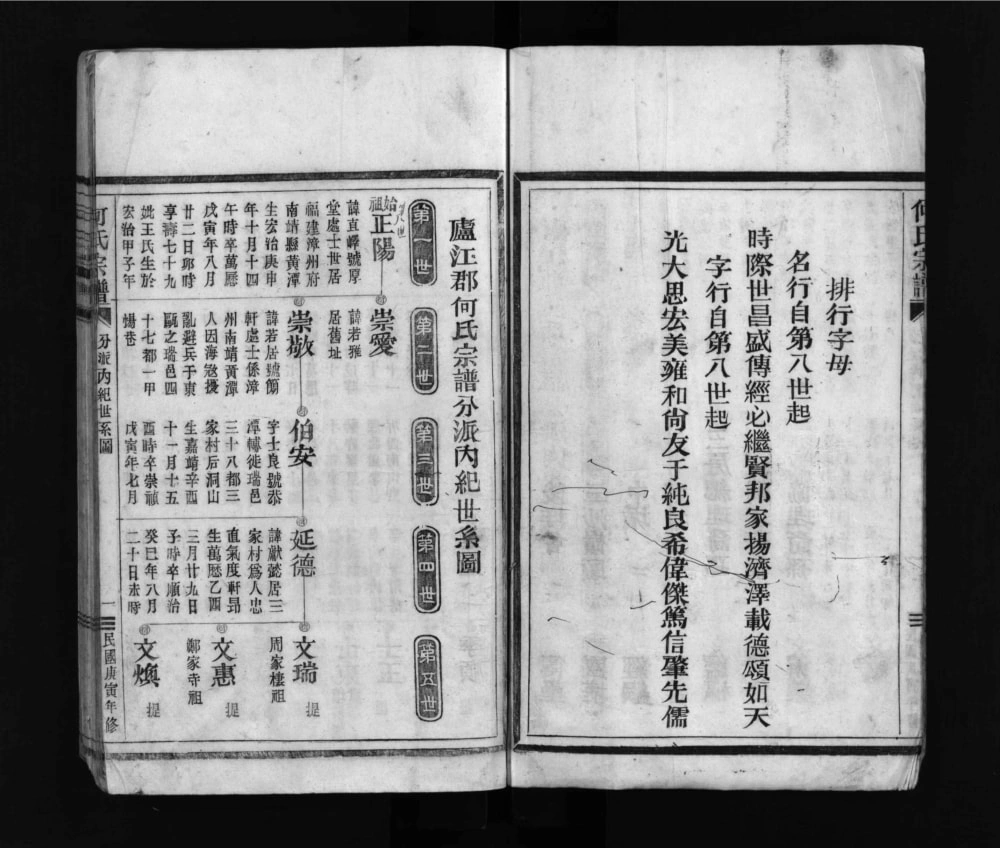 何氏宗譜
排行字母
名行自第八世起
時際世昌盛傳經必繼賢邦家揚濟澤載德頌如天
字行自第八世起
光大思宏美雍和尚友于純良希偉傑篤信肇先儒
廬江郡何氏宗譜分派內紀世系圖
第一世
第二世
第三世
第四世
第五世
始祖正陽
諱直嶧號厚
堂處士世居
福建漳州府
南靖縣黃潭
生宏治庚申
年十月十四
午時卒萬曆
戊寅年八月
廿二日卯時
享壽七十九
妣王氏生於
宏治甲子年
崇愛
諱若雅
居舊址
崇敬
諱若居號簡
軒處士係漳
州南靖黃潭
人因海寇擾
亂避兵于東
甌之瑞邑四
十七都一甲
惕巷
伯安
字士良號恭
潭轉徙瑞邑
三十八都三
家村后洞山
生嘉靖辛酉
十一月十五
酉時卒崇禎
戊寅年七月
延德
諱獻懿居三
家村爲人忠
直氣度軒昻
生萬曆乙酉
三月廿九日
子時卒順治
癸巳年八月
二十日未時
文瑞 提
周家棲祖
文惠 提
鄭家寺祖
文煥 提
何氏宗譜
分派內紀世系圖
一
民國庚寅年修